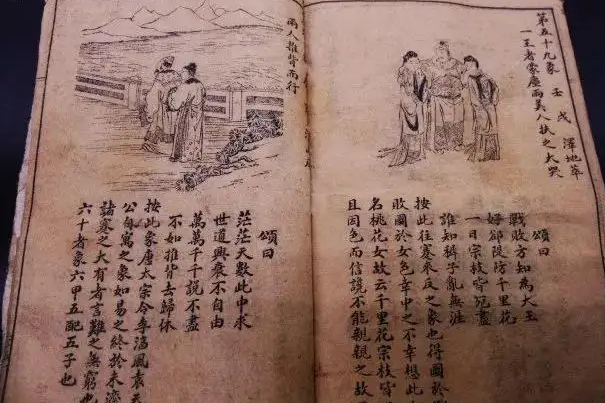 第五十九象 壬戌 澤地萃
一王者蒙塵兩美人扶之大哭
頌曰
戰敗方知為大王
好 防千里花
一日宗枝皆死盡
誰知稗子亂無涯
按此往蹇來反之象也得國於
敗國於女色幸中之不幸想此
名桃花女故云千里花宗枝皆
且因色而信讒不能親親之故
兩人推背而行
頌曰
茫茫天數此中求
世道興衰不自由
萬萬千千說不盡
不如推背去歸休
按此象唐太宗令李淳風袁天
公自寓之象如易之終於未濟
諸蹇之大有者言難之無窮也
六十者象六甲五配五子也